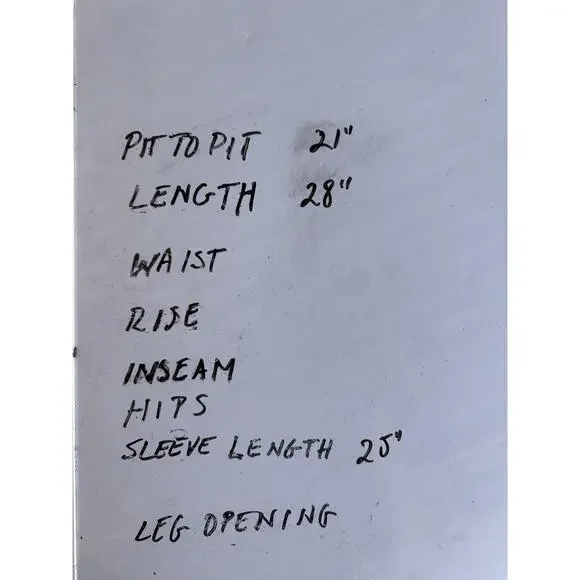 PIT TO PIT 21"
LENGTH 28"
WAIST
RISE
INSEAM
HIPS
SLEEVE LENGTH 25"
LEG OPENING